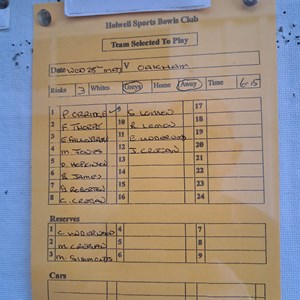 Holwell Sports Bowls Club
Team Selected To Play
Date WED 25th MAY V OAKHAM
Rinks 3 Whites Greys Home Away Time 6-15
1 P. ORRIDGE 9 17
2 F. THORPE 10 R. LEMON 18
3 11 C. UNDERWOOD 19
4 M. JONES 12 J. CROJAN 20
5 D. HOPEWELL 13 21
6 B. JAMES 14 22
7 15 23
8 16 24
Reserves
1 C. UNDERWOOD 4 7
2 M. 5 8
3 M. SIMMONDS 6 9
Cars